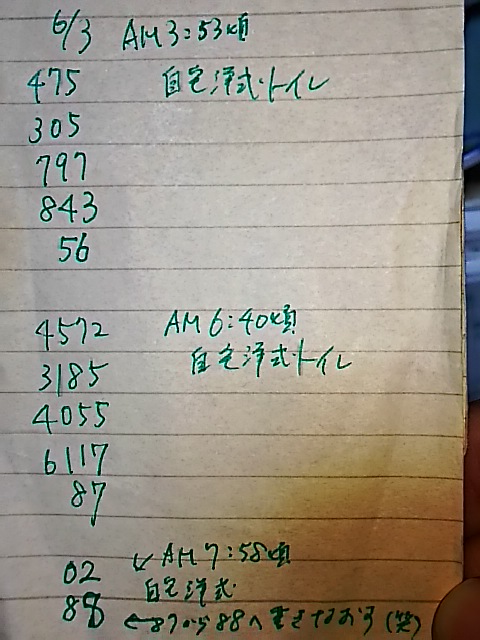 6/3 AM3:53頃
475 自宅洋式トイレ
305
797
843
56
4572 AM6:40頃
3185 自宅洋式トイレ
4055
6117
87
02 ↙AM7:58頃
自宅洋式
88 ←87から88へ書きなおす(笑)